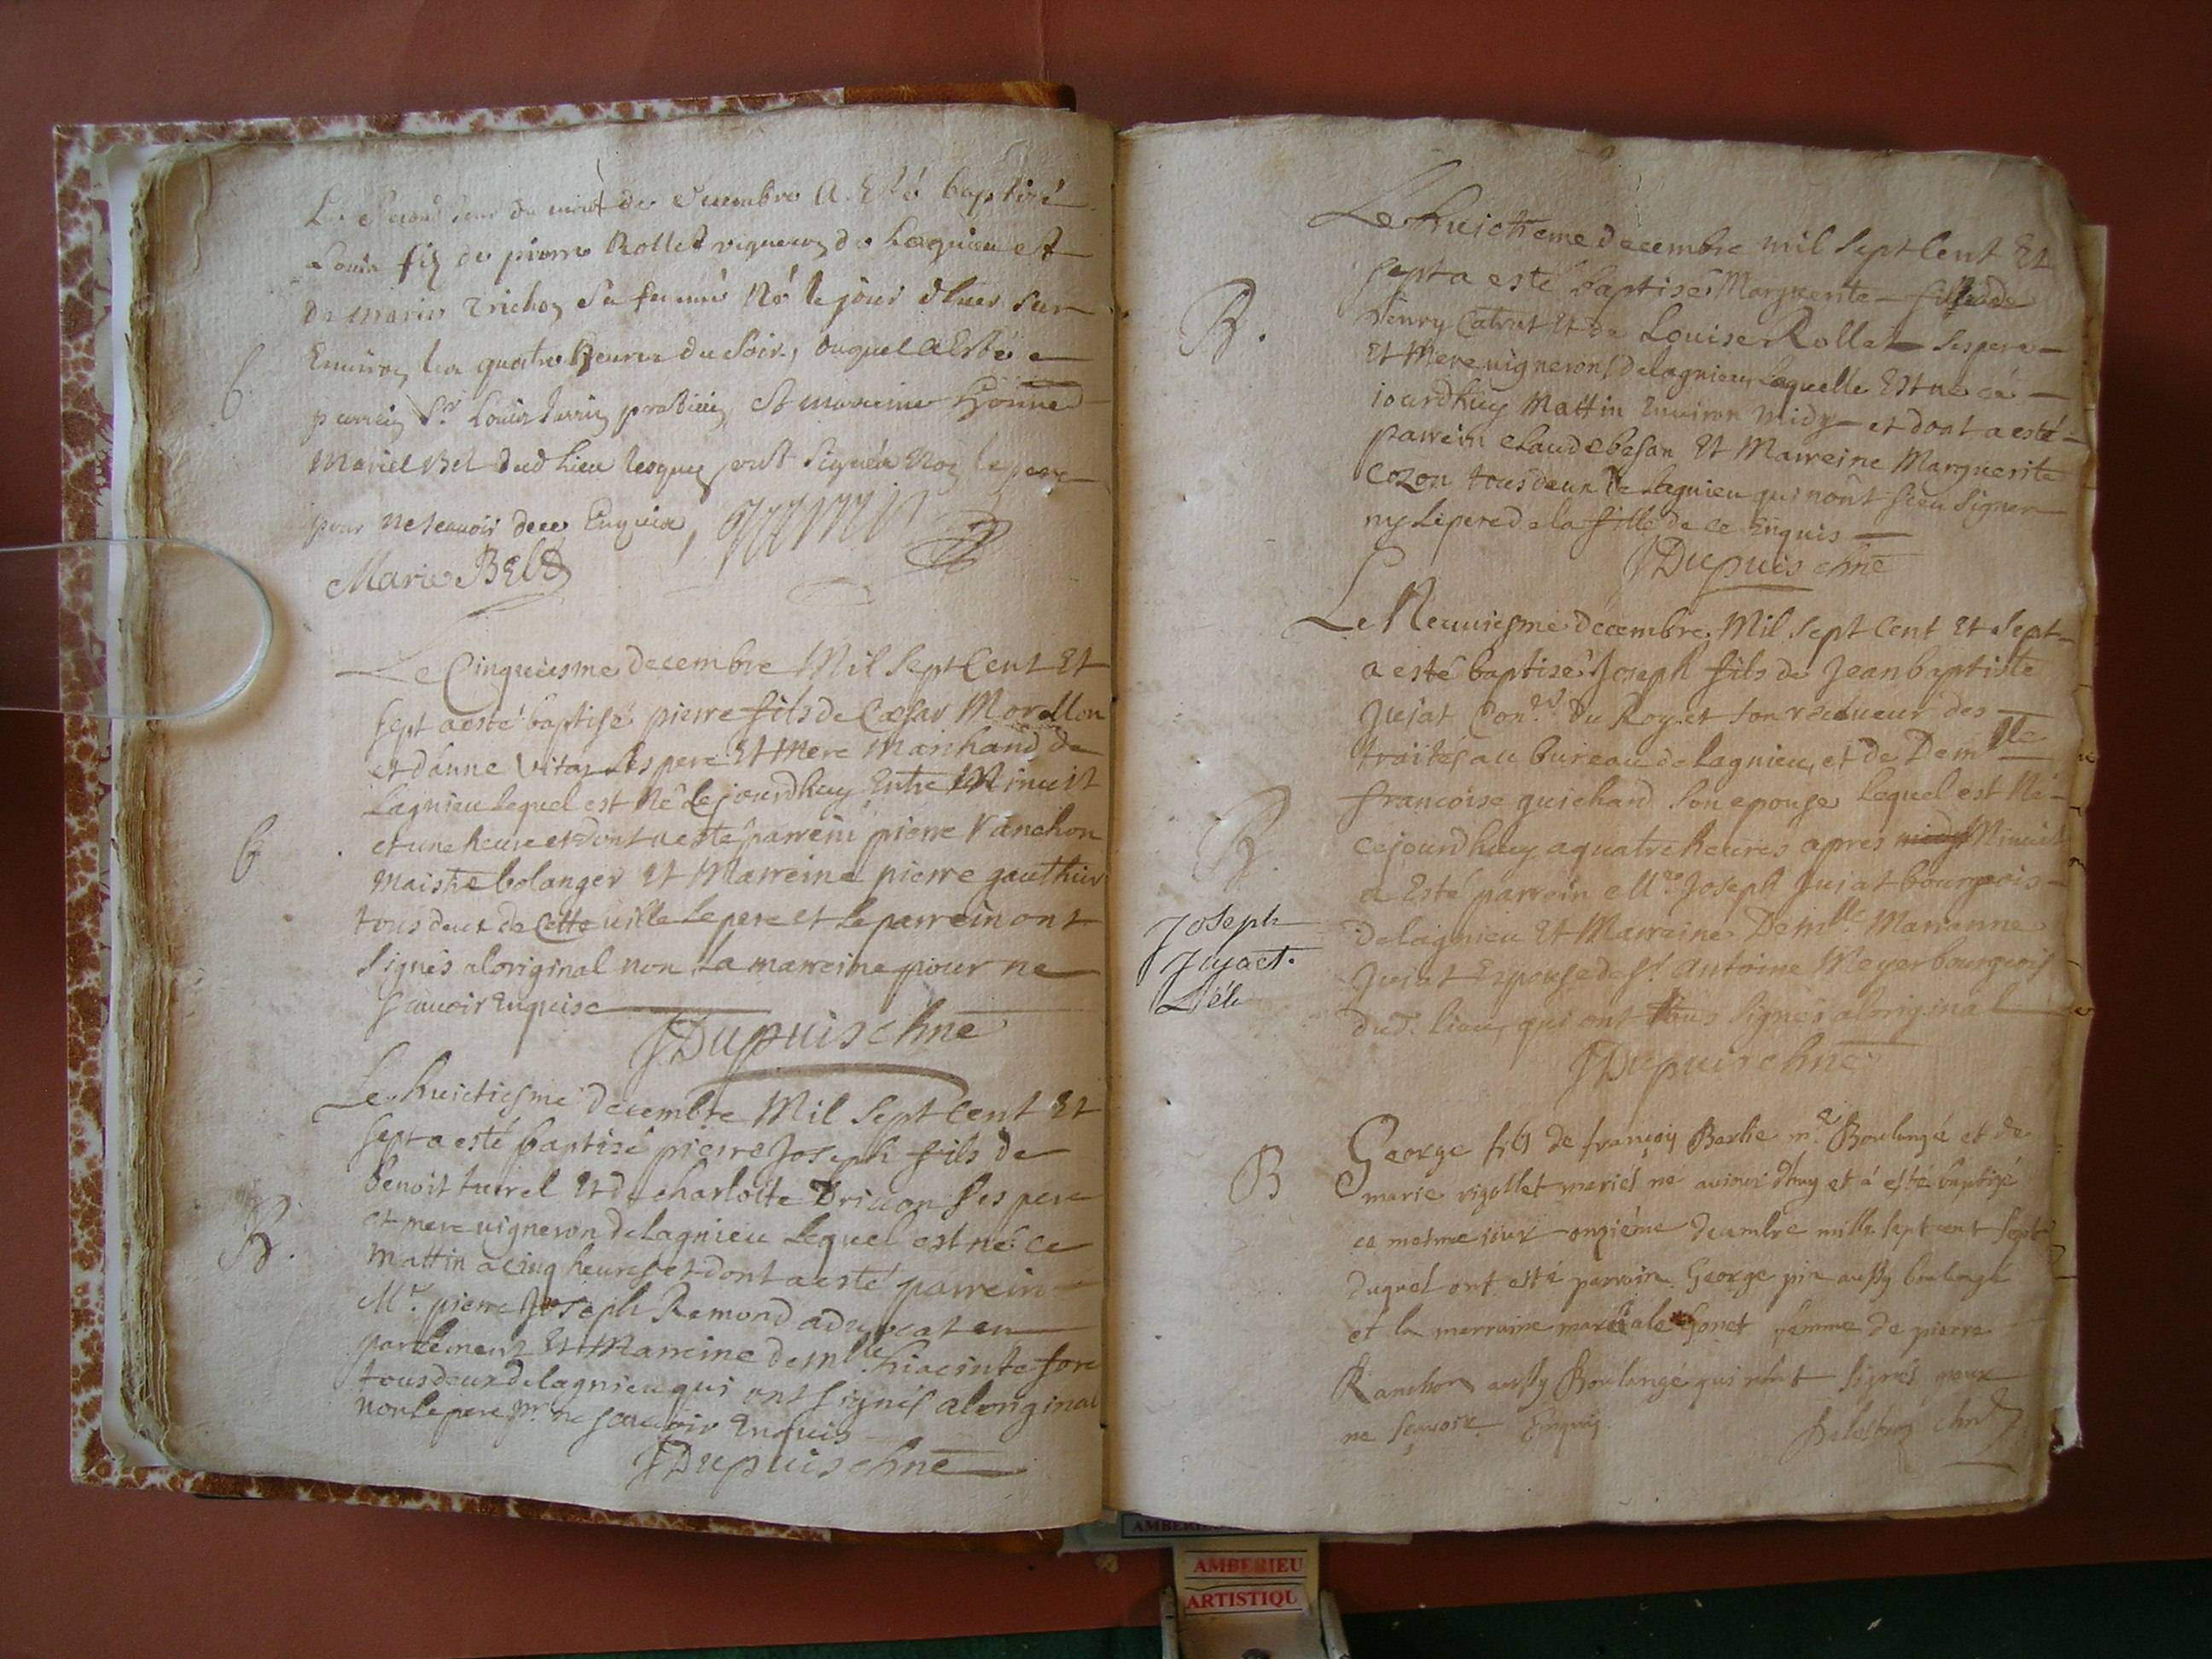 Le Second jour du mois de decembre A Esté baptisé
Louis filz de pierre Rollet vigneron de Lagnieu et
de marie Trichon Sa femme Né le jour d'hier Sur
Environ les quatre heures du Soir, duquel a Esté
b
parrein Sr. Louis praticien et marreine honned
Marie Bel dud Lieu lesquez ont Signéz Non le pere
pour ne Scauoir dece Enquis
Marie Bel
Le Cinquiesme decembre Mil Sept Cent Et
Sept a esté baptisé pierre fils de Cæsar Morellon
et danne vitaz Ses pere Et Mere Marchand de
Lagnieu lequel est Né Lejourdhuy Entre Minuit
et une heure et dont a esté parrein pierre Ranchon
b
Maistre bolanger Et Marreine pierre gauthier
tous deux de Cette uille Le pere et Le parrein ont
Signés aloriginal non La marreine pour ne
Scauoir Enquise
JDupuis chne
Le huictiesme decembre Mil Sept Cent Et
Sept a esté baptisé pierre Joseph fils de
Benoit turrel Et de charlotte Ses pere
et mere uigneron de Lagnieu Lequel est né ce
B.
Mattin a cinq heures et dont a esté parrein
Mr. pierre Joseph Remond aduocat en
parlement Et Marreine demlle hiacinte fore
tous deux de lagnieu qui ont Signés aloriginal
non Le pere pr. ne scauoir Enquis
JDupuis chne
Le huictieme decembre mil Sept Cent Et
Sept a esté baptisé Marguerite fille de
B.
henry Catrat Et de Louise Rollet Ses pere
Et Mere uignerons de lagnieu Laquelle Est née ce
jourdhuy Mattin Enuiron midy et dont a esté
parrein claude besan Et Marreine Marguerite
Cozon tous deux de Lagnieu qui nont Sceu Signer
ny Le pere de la fille de ce Enquis
JDupuis chne
Le Neuuiesme decembre Mil Sept Cent Et Sept
a esté baptisé Joseph fils de Jean baptiste
Jujat Conr. du Roy et Son receueur des
traites au bureau de lagnieu, et de Demlle
francoise guichard Son epouse Lequel est Né
B.
cejourdhuy a quatre heures apres midy Minuit
a Esté parrein Mre Joseph Jujat bourgeois
Joseph
Jujact.
de lagnieu Et Marreine Demlle Marianne
Jujat Espouse de Sr. Antoine Meyer bourgeois
dud. lieu, qui ont tous Signés aloriginal
JDupuis chne
George fils de françois Barlie mre. Boulangé et de
B
marie vigollet mariés ne auiourdhuy et á esté baptizé
ce mesme iour onziéme decembre mille sept cent sept
duquel ont esté parrain George pin aussy boulangé
et la marraine martiale Gonet femme de pierre
Ranchon aussy Boulangé qui n'ont signés pour
ne sçauoir Enquis